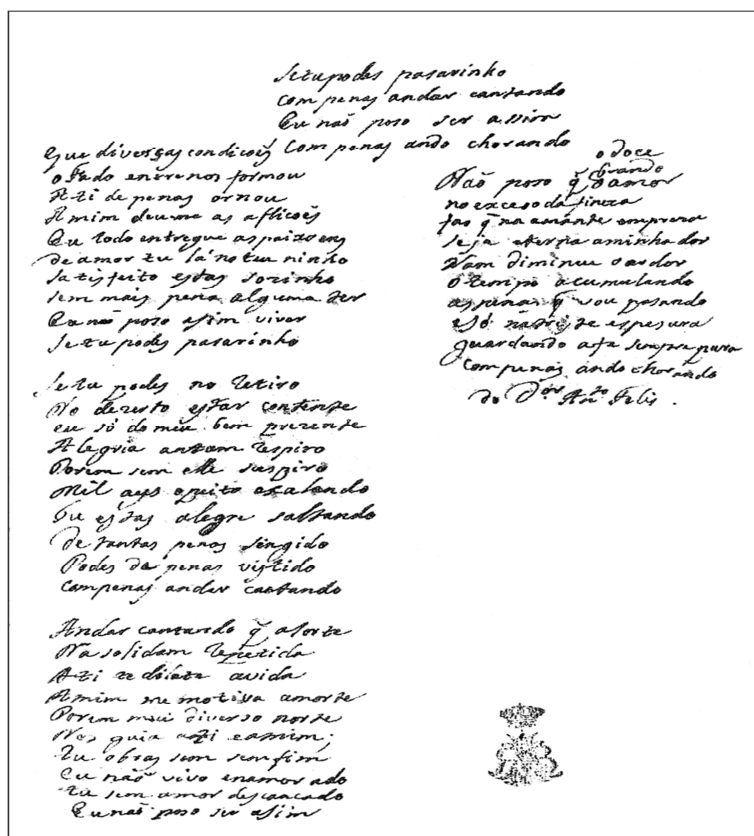 Se tu podes pasarinho
com penas andar cantando
Eu naõ poso ser assim
Com penas ando chorando
Que diverças condicoẽs
o Fado entre nos formou
A ti de penas ornou
A mim deume as aflicoẽs
Eu todo entregue as paixoens
de amor tu lâ no teu ninho
satisfeito estas sozinho
sem mais pena alguma ter
Eu naõ poso asim viver
Se tu podes pasarinho
Se tu podes no retiro
No dezerto estar contente
eu sô do meu bem prezente
Alegria antam respiro
Porem sem elle suspiro
Mil ays o peito exalando
Tu estas alegre saltando
de tantas penas singido
Podes de penas vistido
Com penas andar cantando
Andar cantando q̃ a sorte
Na solidam repetida
A ti te dilata a vida
A mim me motiva a morte
Porem mui diverso norte
Nos guia a ti e a mim;
Tu obras sem sem fim
Eu naõ vivo enamorado
tu sem amor descancado
Eu naõ poso ser asim
o doce
brando
Naõ poso q̃ o amor
no exceso da fineza
faz q̃ na amante empreza
seja eterna a minha dor
Nam diminue o ardor
O tempo acumulando
as penas q̃ vou pasando
e sô nesta espesura
guardando a fe sempre pura
Com penas ando chorando
do D.ᵒʳ An.ᵗᵒ Felis.